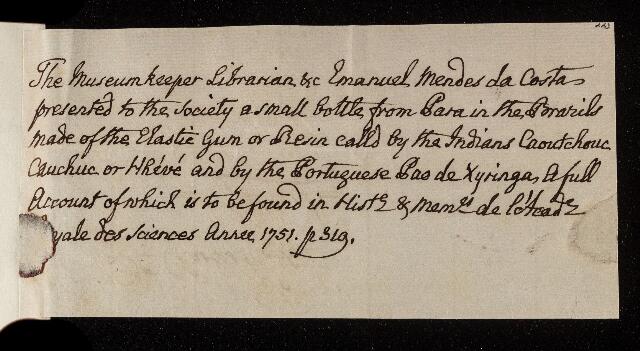 The Museumkeeper Librarian &c Emanuel Mendes da Costa
presented to the Society a small bottle from Para in the Brazils
made of the Elastic Gum or Resin calld by the Indians Caoutchouc
Cauchuc or Hhévé and by the Portuguese Pao de Xyringa, A full
Account of which is to be found in Histe. & Memrs de l'Acade.
yale des Sciences Annee 1751. p319.